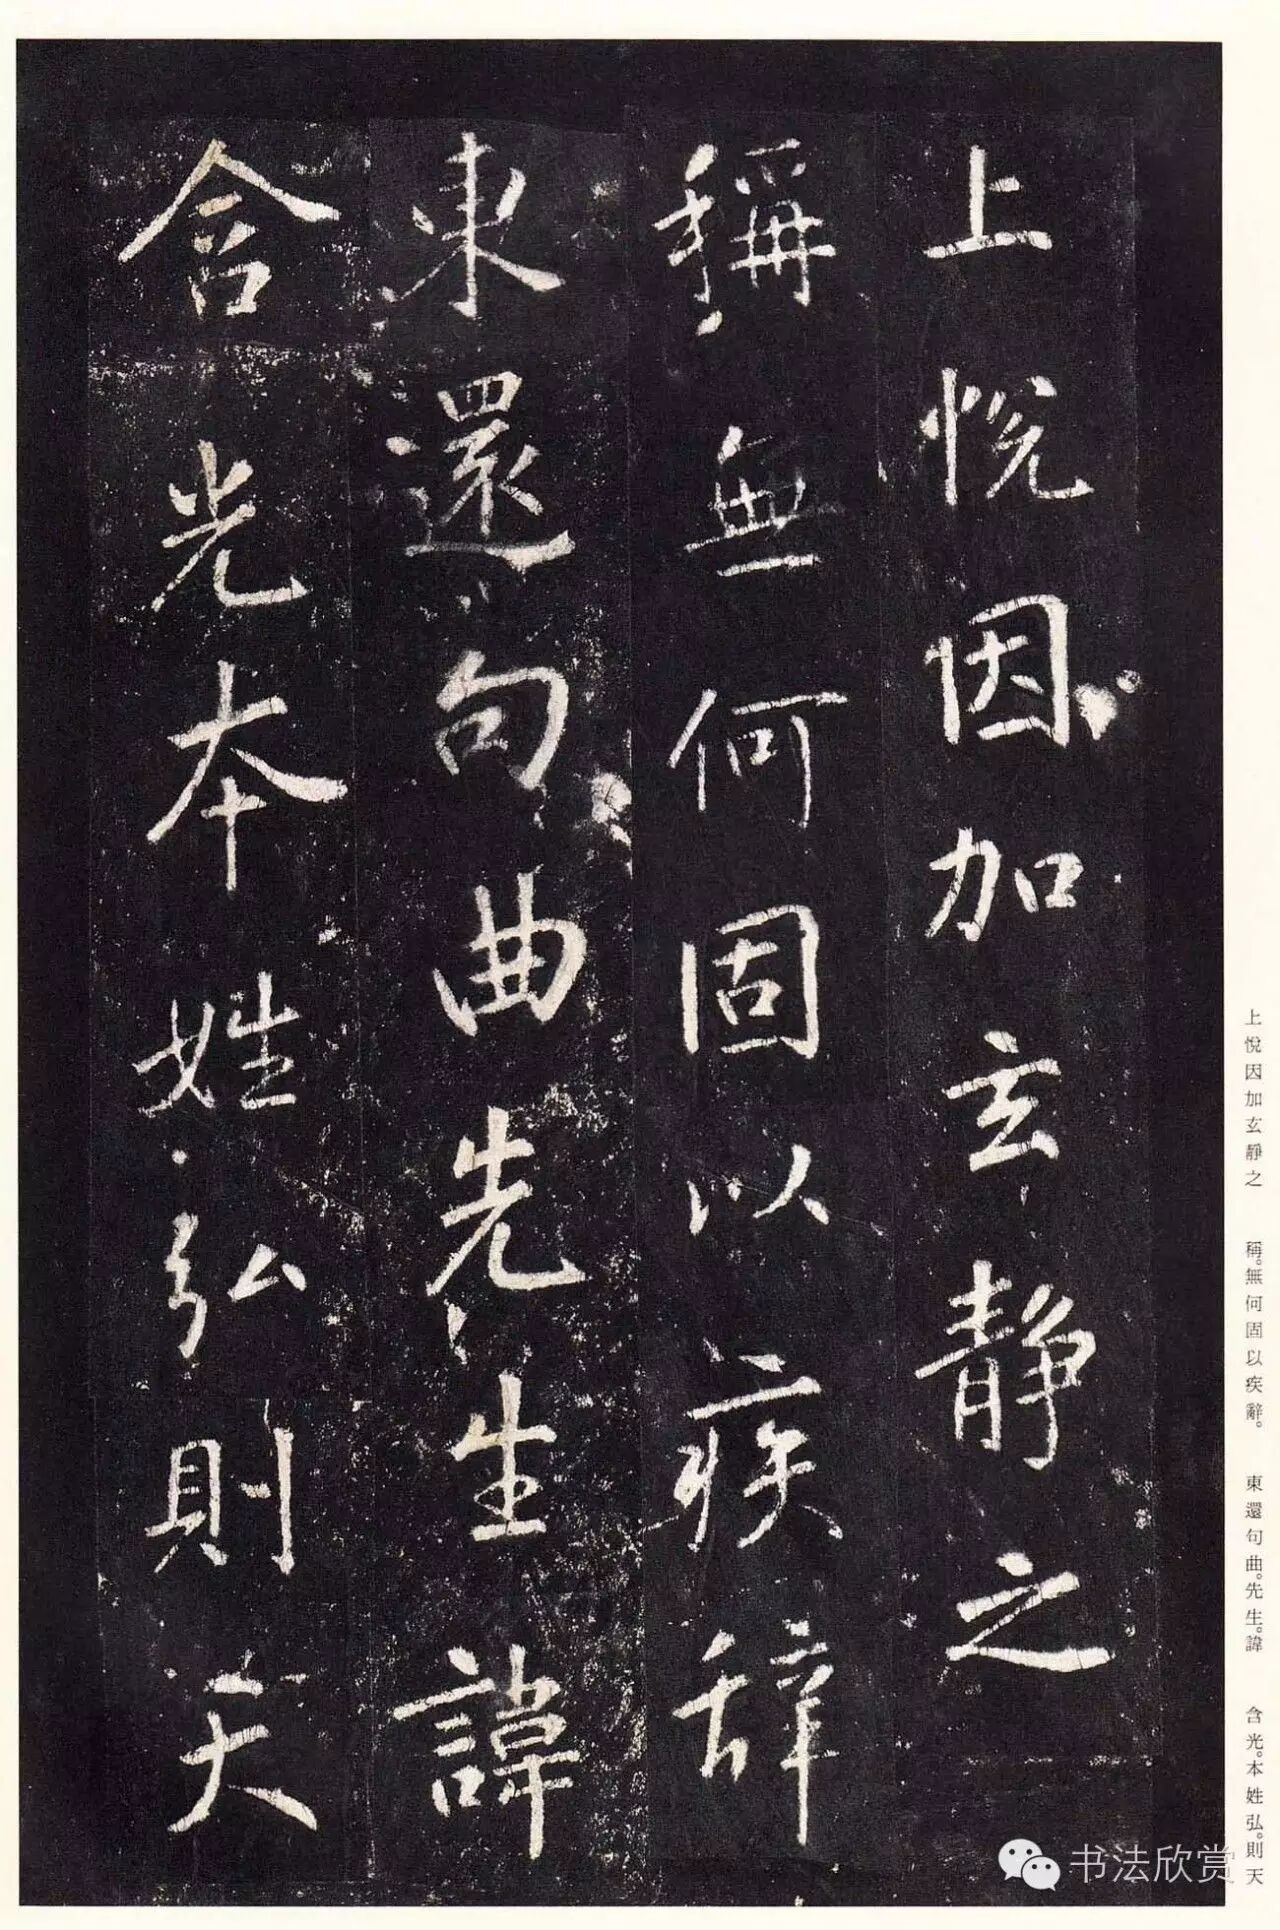 上悅因加玄靜之
稱無何固以疾辞
東還句曲先生諱
含光本姓弘則天
上悅因加玄靜之 稱。無何固以疾辭。 東還句曲。先生。諱 含光。本姓弘。則天
书法欣赏